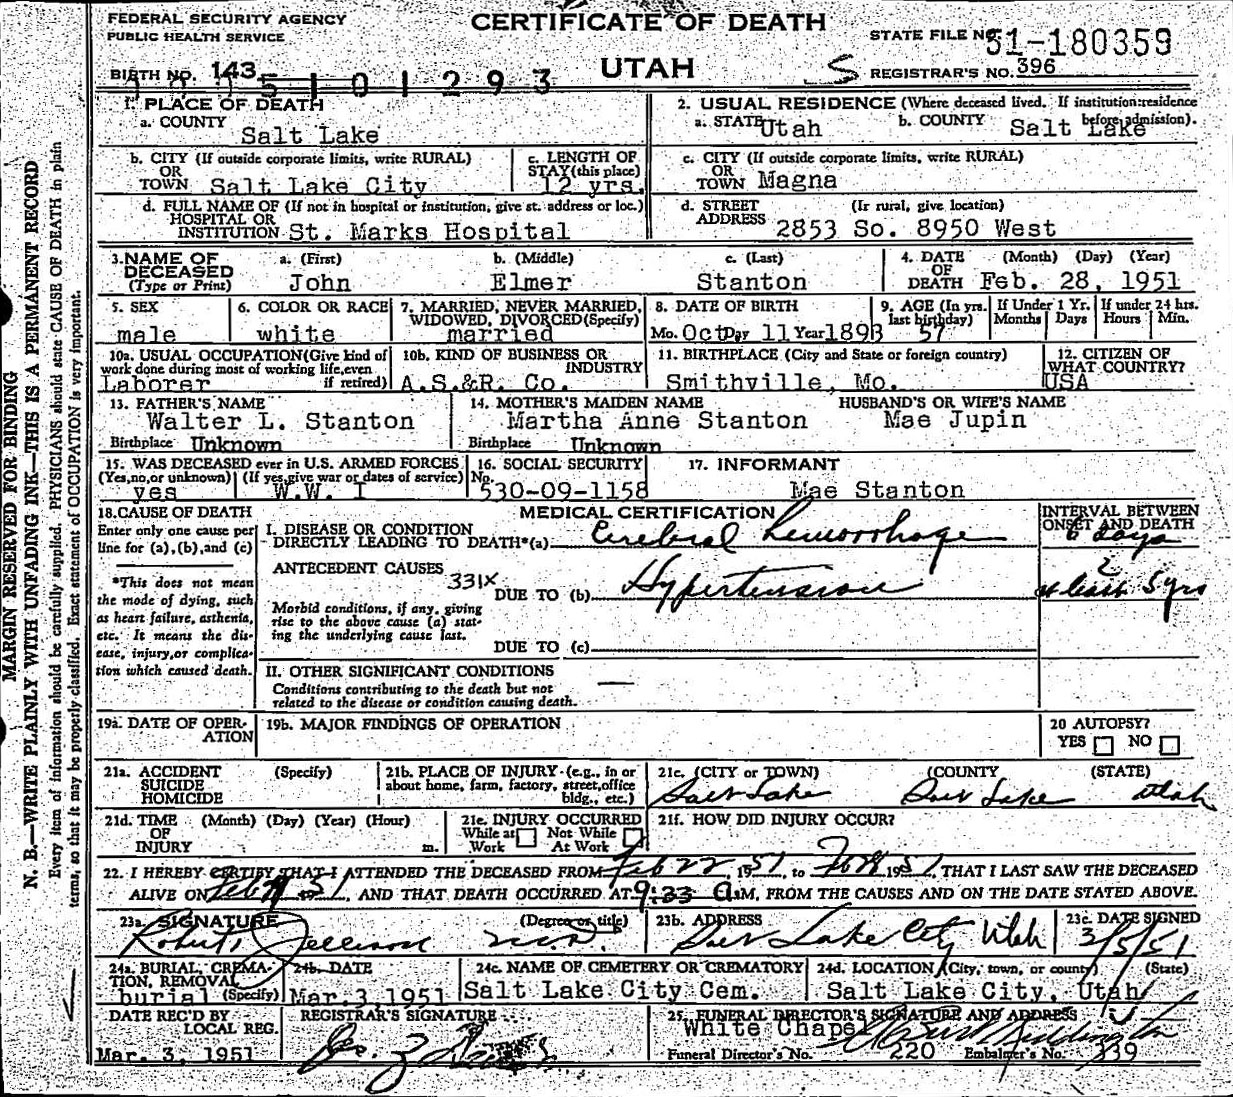 FEDERAL SECURITY AGENCY
PUBLIC HEALTH SERVICE
CERTIFICATE OF DEATH
UTAH
STATE FILE NO. 51-180359
BIRTH NO. 143
S
REGISTRAR'S NO. 396
1. PLACE OF DEATH
a. COUNTY Salt Lake
b. CITY (If outside corporate limits, write RURAL) OR TOWN Salt Lake City
c. LENGTH OF STAY (this place) 12 yrs.
d. FULL NAME OF (If not in hospital or institution, give st. address or loc.) HOSPITAL OR INSTITUTION St. Marks Hospital
2. USUAL RESIDENCE (Where deceased lived. If institution:residence before admission).
a. STATE Utah b. COUNTY Salt Lake
c. CITY (If outside corporate limits, write RURAL) OR TOWN Magna
d. STREET ADDRESS (If rural, give location) 2853 So. 8950 West
3. NAME OF DECEASED (Type or Print)
a. (First) John
b. (Middle) Elmer
c. (Last) Stanton
4. DATE OF DEATH (Month) (Day) (Year) Feb. 28, 1951
5. SEX male
6. COLOR OR RACE white
7. MARRIED, NEVER MARRIED, WIDOWED, DIVORCED (Specify) married
8. DATE OF BIRTH Mo. Oct Day 11 Year 1893
9. AGE (In yrs. last birthday) 57
If Under 1 Yr. Months Days
If under 24 hrs. Hours Min.
10a. USUAL OCCUPATION (Give kind of work done during most of working life, even if retired) Laborer
10b. KIND OF BUSINESS OR INDUSTRY A.S.&R. Co.
11. BIRTHPLACE (City and State or foreign country) Smithville, Mo.
12. CITIZEN OF WHAT COUNTRY? USA
13. FATHER'S NAME Walter L. Stanton
Birthplace Unknown
14. MOTHER'S MAIDEN NAME Martha Anne Stanton
Birthplace Unknown
HUSBAND'S OR WIFE'S NAME Mae Jupin
15. WAS DECEASED ever in U.S. ARMED FORCES
(Yes,no,or unknown) yes
(If yes,give war or dates of service) W.W. I
16. SOCIAL SECURITY No. 530-09-1158
17. INFORMANT Mae Stanton
18. CAUSE OF DEATH
Enter only one cause per line for (a),(b),and (c)
*This does not mean the mode of dying, such as heart failure, asthenia, etc. It means the disease, injury,or complication which caused death.
MEDICAL CERTIFICATION
INTERVAL BETWEEN ONSET AND DEATH
I. DISEASE OR CONDITION DIRECTLY LEADING TO DEATH*(a) Cerebral hemorrhage 6 days
ANTECEDENT CAUSES 331X
DUE TO (b) Hypertension
2
at least 5 yrs
Morbid conditions, if any, giving rise to the above cause (a) stating the underlying cause last.
DUE TO (c)
II. OTHER SIGNIFICANT CONDITIONS —
Conditions contributing to the death but not related to the disease or condition causing death.
19a. DATE OF OPERATION
19b. MAJOR FINDINGS OF OPERATION
20 AUTOPSY? YES NO
21a. ACCIDENT SUICIDE HOMICIDE (Specify)
21b. PLACE OF INJURY (e.g., in or about home, farm, factory, street,office bldg., etc.)
21c. (CITY or TOWN) (COUNTY (STATE)
Salt Lake Salt Lake Utah
21d. TIME OF INJURY (Month) (Day) (Year) (Hour) m.
21e. INJURY OCCURRED While at Work Not While At Work
21f. HOW DID INJURY OCCUR?
22. I HEREBY CERTIFY THAT I ATTENDED THE DECEASED FROM Feb 22 51, 19 to 19 51, THAT I LAST SAW THE DECEASED
ALIVE ON Feb 51, AND THAT DEATH OCCURRED AT 9:33 A.M, FROM THE CAUSES AND ON THE DATE STATED ABOVE.
23a. SIGNATURE (Degree or title) Robert Jellison M.D.
23b. ADDRESS Salt Lake City Utah
23c. DATE SIGNED 3/5/51
24a. BURIAL, CREMATION, REMOVAL (Specify) burial
24b. DATE Mar. 3, 1951
24c. NAME OF CEMETERY OR CREMATORY Salt Lake City Cem.
24d. LOCATION (City, town, or county) (State) Salt Lake City, Utah
DATE REC'D BY LOCAL REG. Mar. 3, 1951
REGISTRAR'S SIGNATURE
25. FUNERAL DIRECTOR'S SIGNATURE AND ADDRESS
White Chapel
Funeral Director's No. 220 Embalmer's No. 339
MARGIN RESERVED FOR BINDING
N. B.—WRITE PLAINLY WITH UNFADING INK—THIS IS A PERMANENT RECORD
Every item of information should be carefully supplied. PHYSICIANS should state CAUSE OF DEATH in plain
terms, so that it may be properly classified. Exact statement of OCCUPATION is very important.